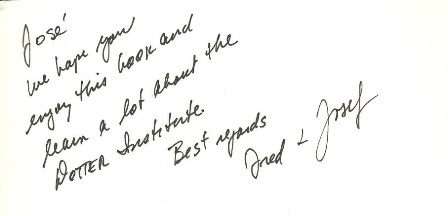 José
We hope you
enjoy this book and
learn a lot about the
DOTTER Institute
Best regards
Fred & Josef